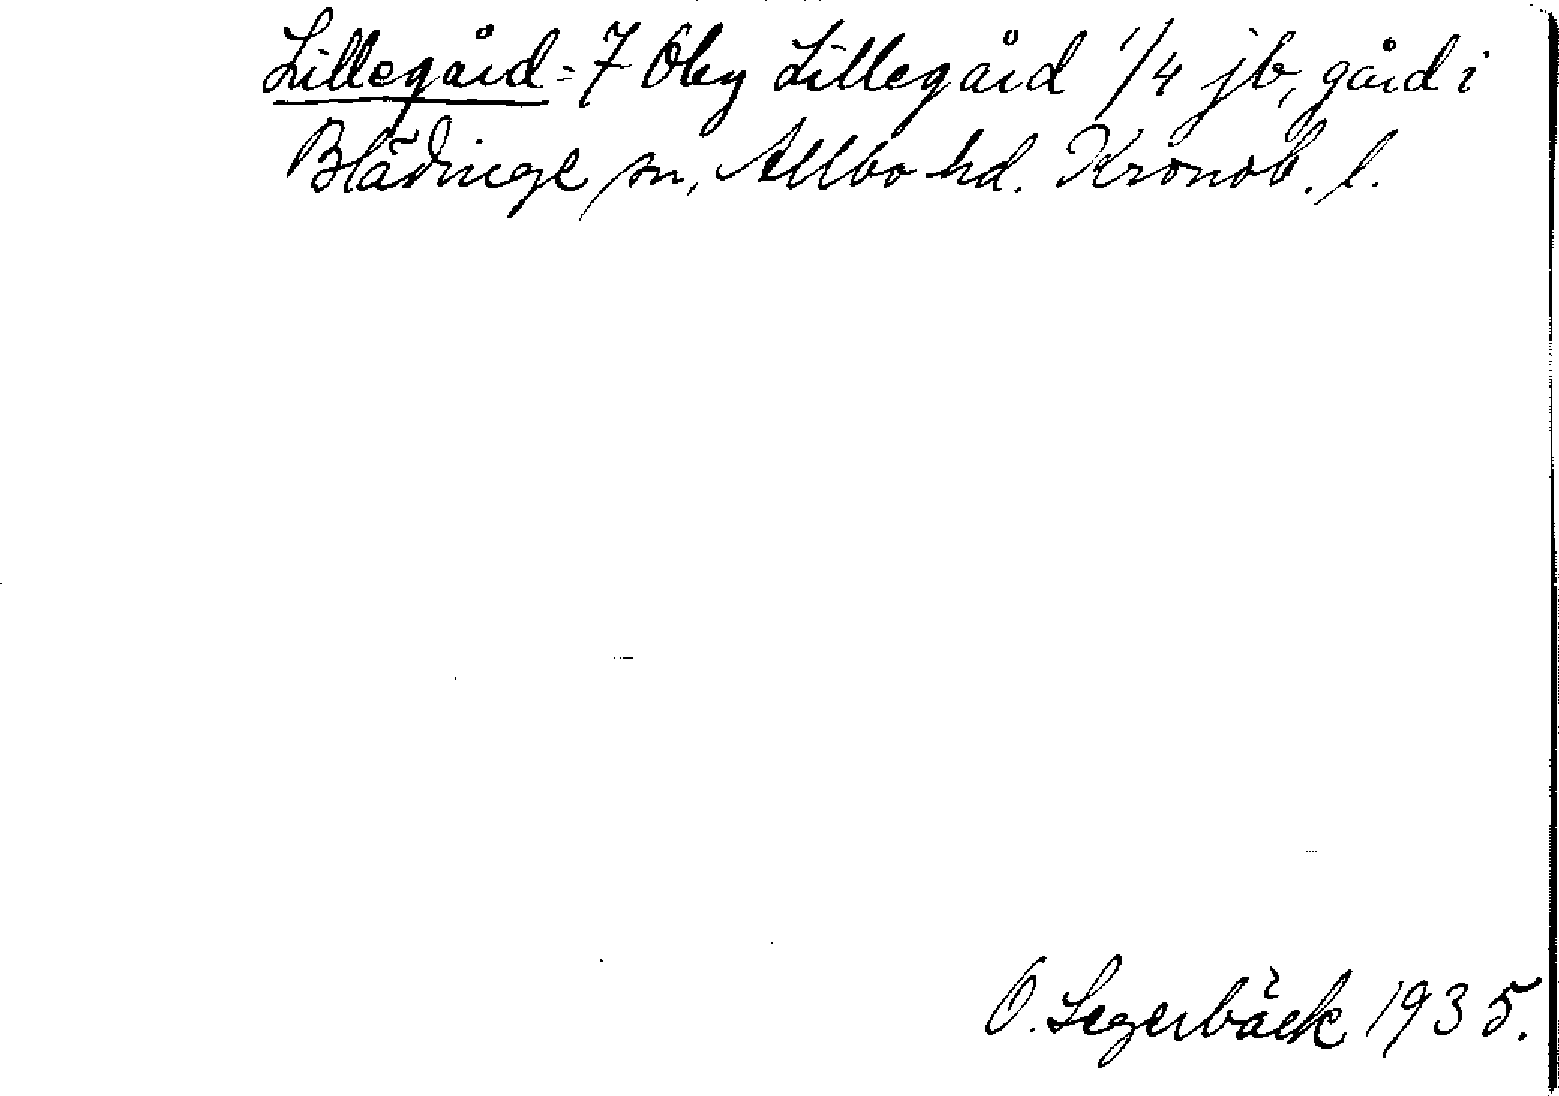 Lillegård = 7 Oby Lillegård 1/4 jb, gård i
Blädinge sn, Allbo hd. Kronob. l.
O. Segerbäck 1935.